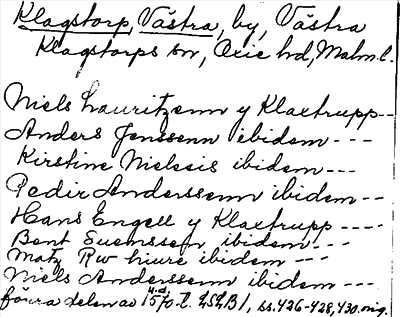 Klagstorp, Västra, by, Västra
Klagstorps sn, Oxie hd, Malm. l.
Niels Lauritzenn y Klaxtrupp --
Anders Jenssenn ibidem ---
Kirstine Nielsis ibidem ---
Pedir Anderssenn ibidem --
Hans Engell y Klaxtrupp ----
Bent Suenssen ibidem ---
Matz Rw hiure ibidem ---
Niels Anderssenn ibidem ---
förra delen av 1570-t. LSLB1, ss. 426-428, 430.